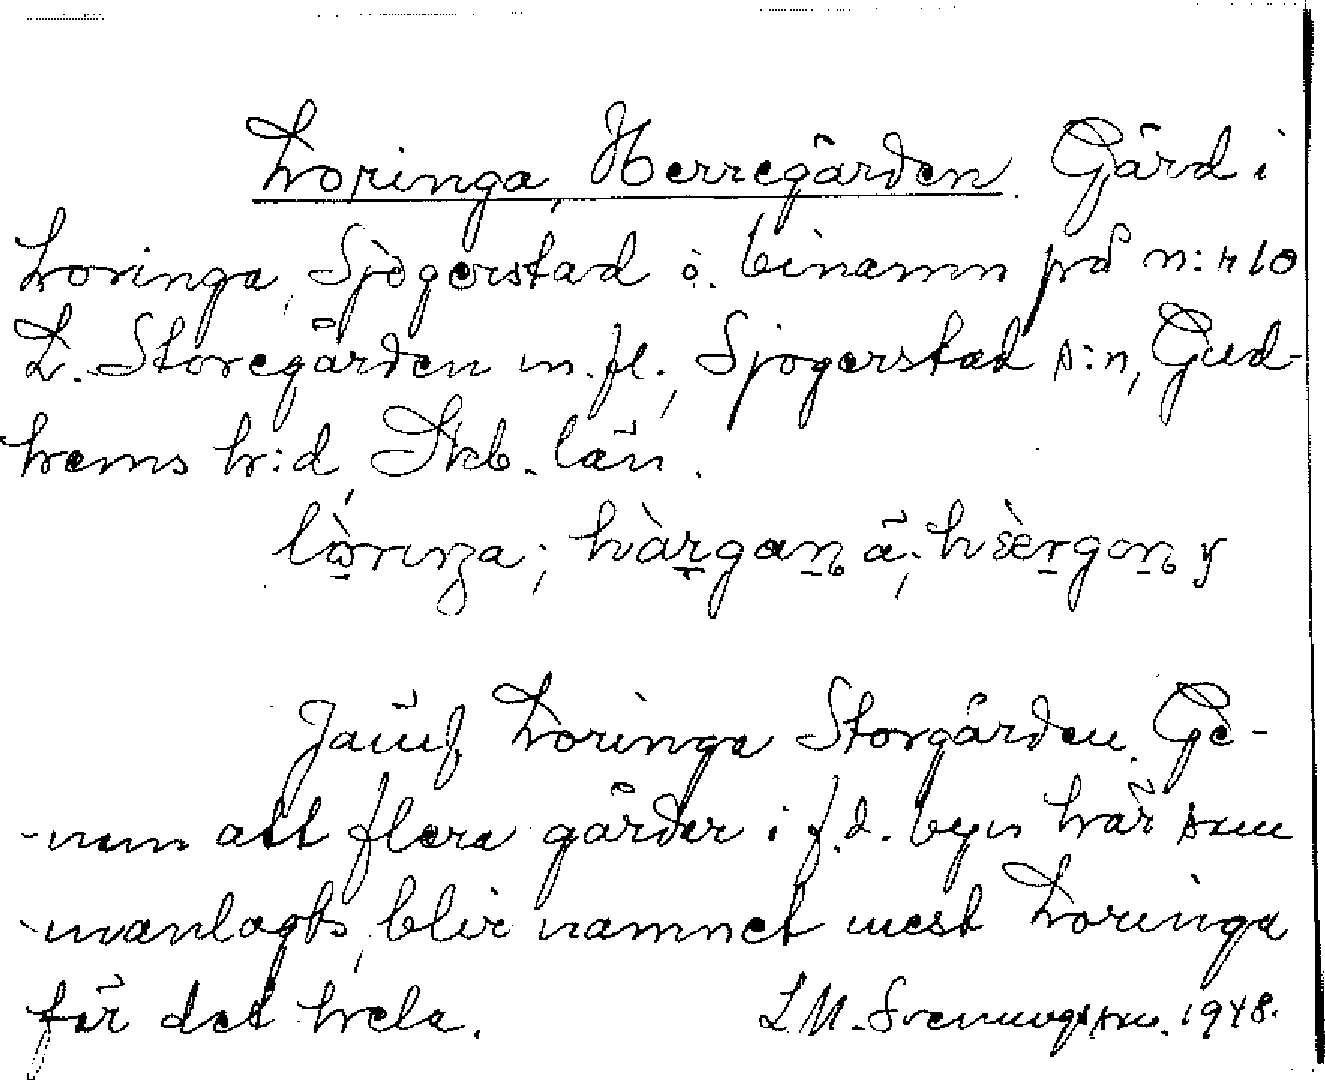 Loringa, Herregården. Gård i
Loringa, Sjögerstad o. binamn på n:r 10
L. Storegården m. fl., Sjogerstad s:n, Gud-
hems h:d Skb. län.
lòrıŋa; hàrgaṉ å; hæ̀rgoṉ y
Jämf. Loringa Storgården. Ge-
-nom att flera gårder i f.d. byn här sam
-manlagts, blir namnet mest Loringa
för det hela.
L M. Svenungsson. 1948.